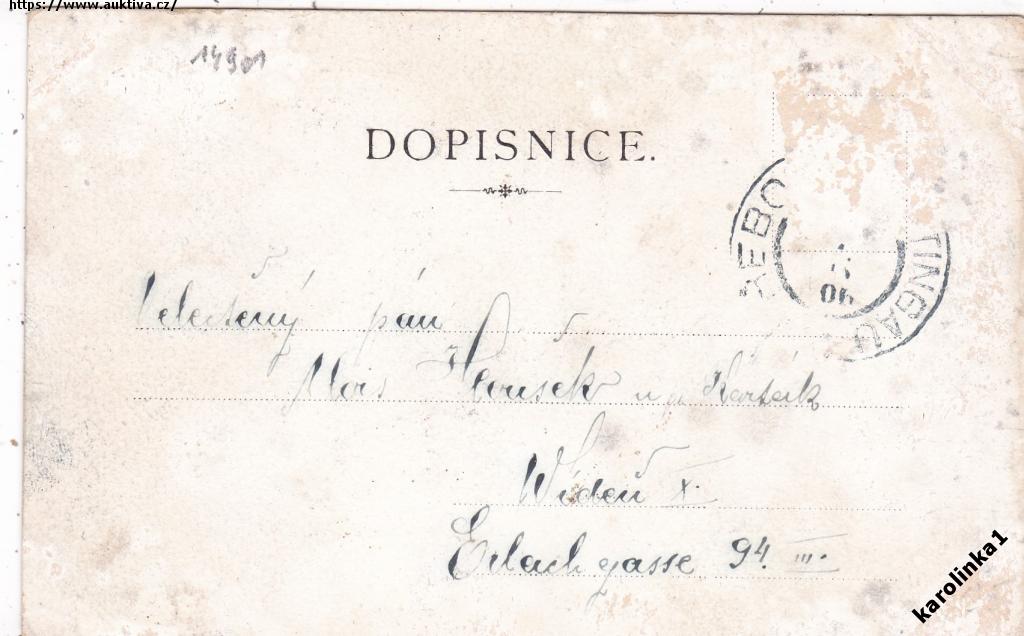 https://www.auktiva.cz/
14901
DOPISNICE.
ŘEBO TINGAU
06
Velectěný pán
Alois Hloušek u a
Wídeň X.
Erlachgasse 94. III.
karolinka1